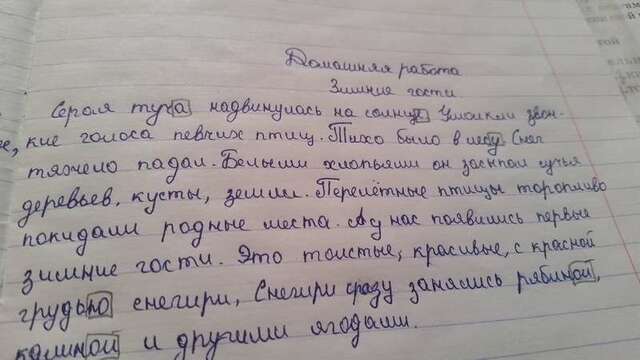 Домашняя работа
Зимние гости
Серая туча надвинулась на солнце. Умолкли звон-
кие голоса певчих птиц. Тихо было в лесу. Снег
тяжело падал. Белыми хлопьями он засыпал сучья
деревьев, кусты, землю. Перелётные птицы торопливо
покидали родные места. А у нас появились первые
зимние гости. Это толстые, красивые, с красной
грудью снегири, Снегири сразу занялись рябиной,
калиной и другими ягодами.